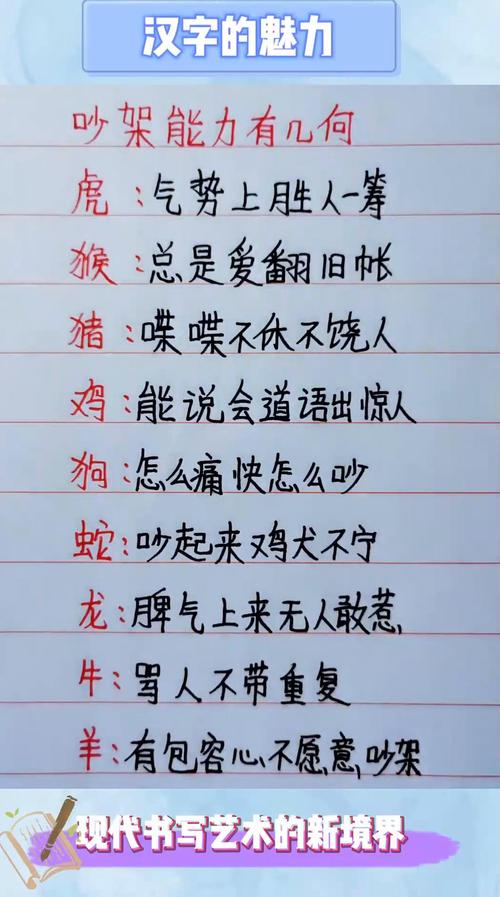 汉字的魅力
吵架能力有几何
虎:气势上胜人一筹
猴:总是爱翻旧帐
猪:喋喋不休不饶人
鸡:能说会道语出惊人
狗:怎么痛快怎么吵
蛇:吵起来鸡犬不宁
龙:脾气上来无人敢惹,
牛:骂人不带重复
羊:有包容心不愿意吵架
现代书写艺术的新境界